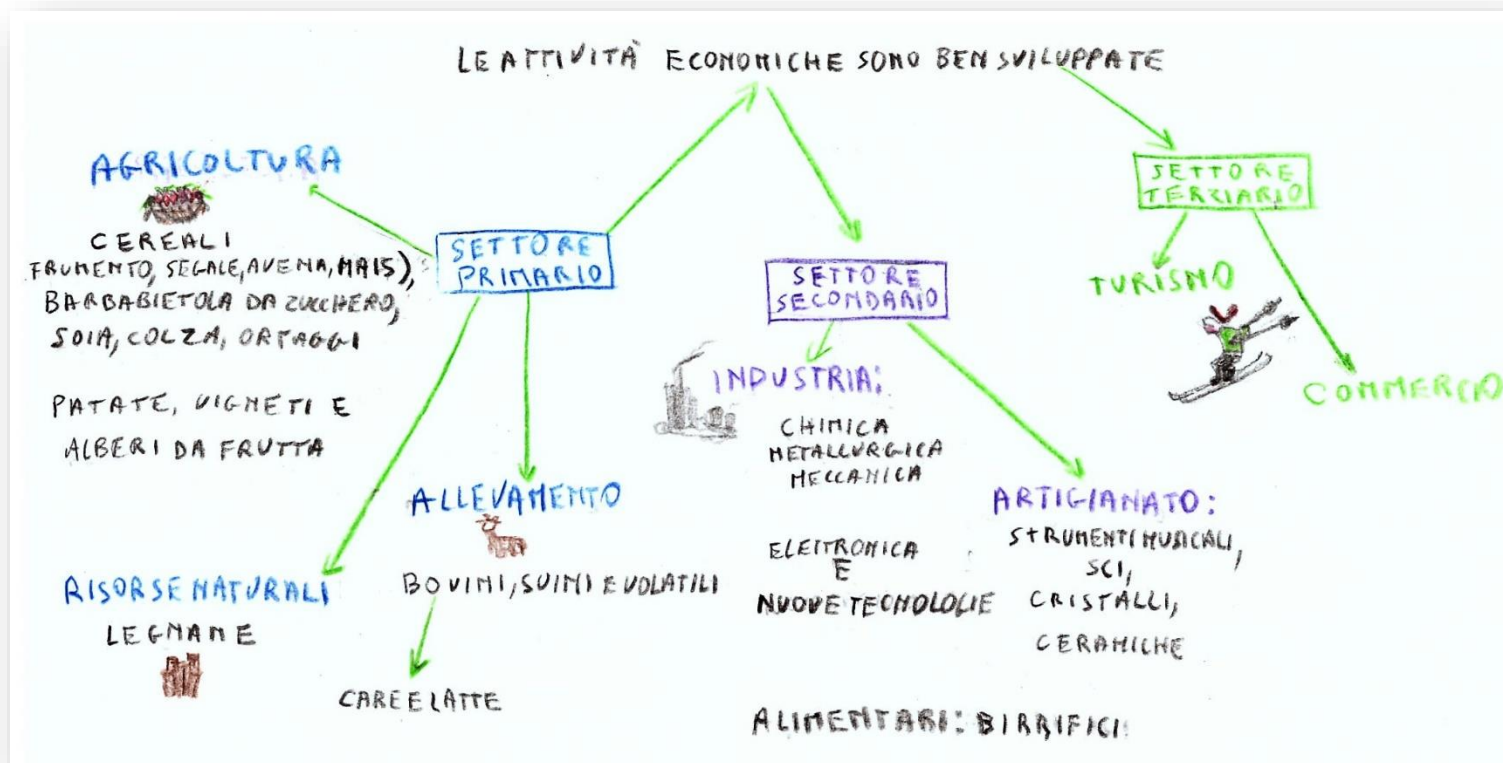 LE ATTIVITÀ ECONOMICHE SONO BEN SVILUPPATE
AGRICOLTURA
CEREALI
FRUMENTO, SEGALE, AVENA, MAIS),
BARBABIETOLA DA ZUCCHERO,
SOIA, COLZA, ORTAGGI
PATATE, VIGNETI E
ALBERI DA FRUTTA
SETTORE
PRIMARIO
ALLEVAMENTO
BOVINI, SUINI E VOLATILI
CARE E LATTE
RISORSE NATURALI
LEGNAME
SETTORE
SECONDARIO
INDUSTRIA:
CHIMICA
METALLURGICA
MECCANICA
ELETTRONICA
E
NUOVE TECNOLOGIE
ALIMENTARI: BIRRIFICI
ARTIGIANATO:
STRUMENTI MUSICALI,
SCI,
CRISTALLI,
CERAMICHE
SETTORE
TERZIARIO
TURISMO
COMMERCIO